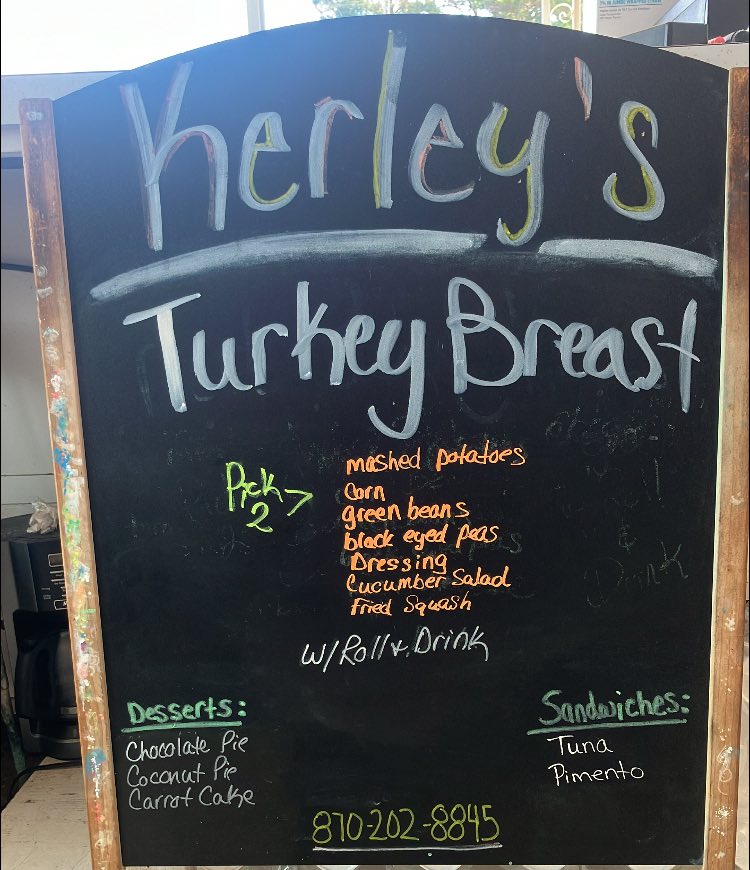 Kerley's
Turkey Breast
Pick 2 >
mashed potatoes
Corn
green beans
black eyed peas
Dressing
Cucumber Salad
Fried Squash
w/Roll & Drink
Desserts:
Chocolate Pie
Coconut Pie
Carrot Cake
Sandwiches:
Tuna
Pimento
870-202-8845